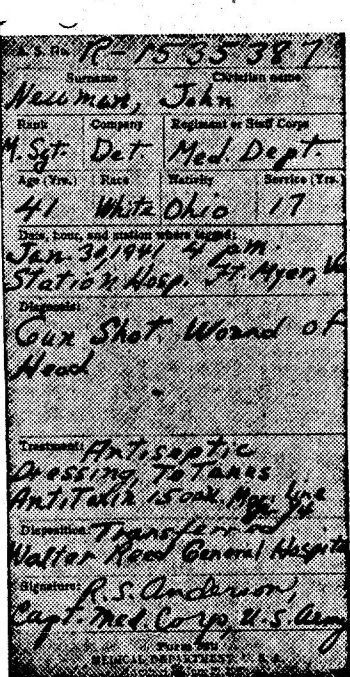 A. S. No. R-1535387
Surname Christian name
Newman, John
Rank Company Regiment or Staff Corps
M. Sgt. Det. Med. Dept.
Age (Yrs.) Race Nativity Service (Yrs.)
41 White Ohio 17
Date, hour, and station where tagged:
Jan. 30, 1941 4 p.m.
Station Hosp. Ft. Myer, Va
Diagnosis:
Gun Shot Wound of
Head
Treatment: Antiseptic
Dressing, Tetanus
AntiToxin 1500u.
Disposition: Transferred
Walter Reed General Hospital
Signature: R. S. Anderson,
Capt. Med. Corp, U.S. Army
MEDICAL DEPARTMENT